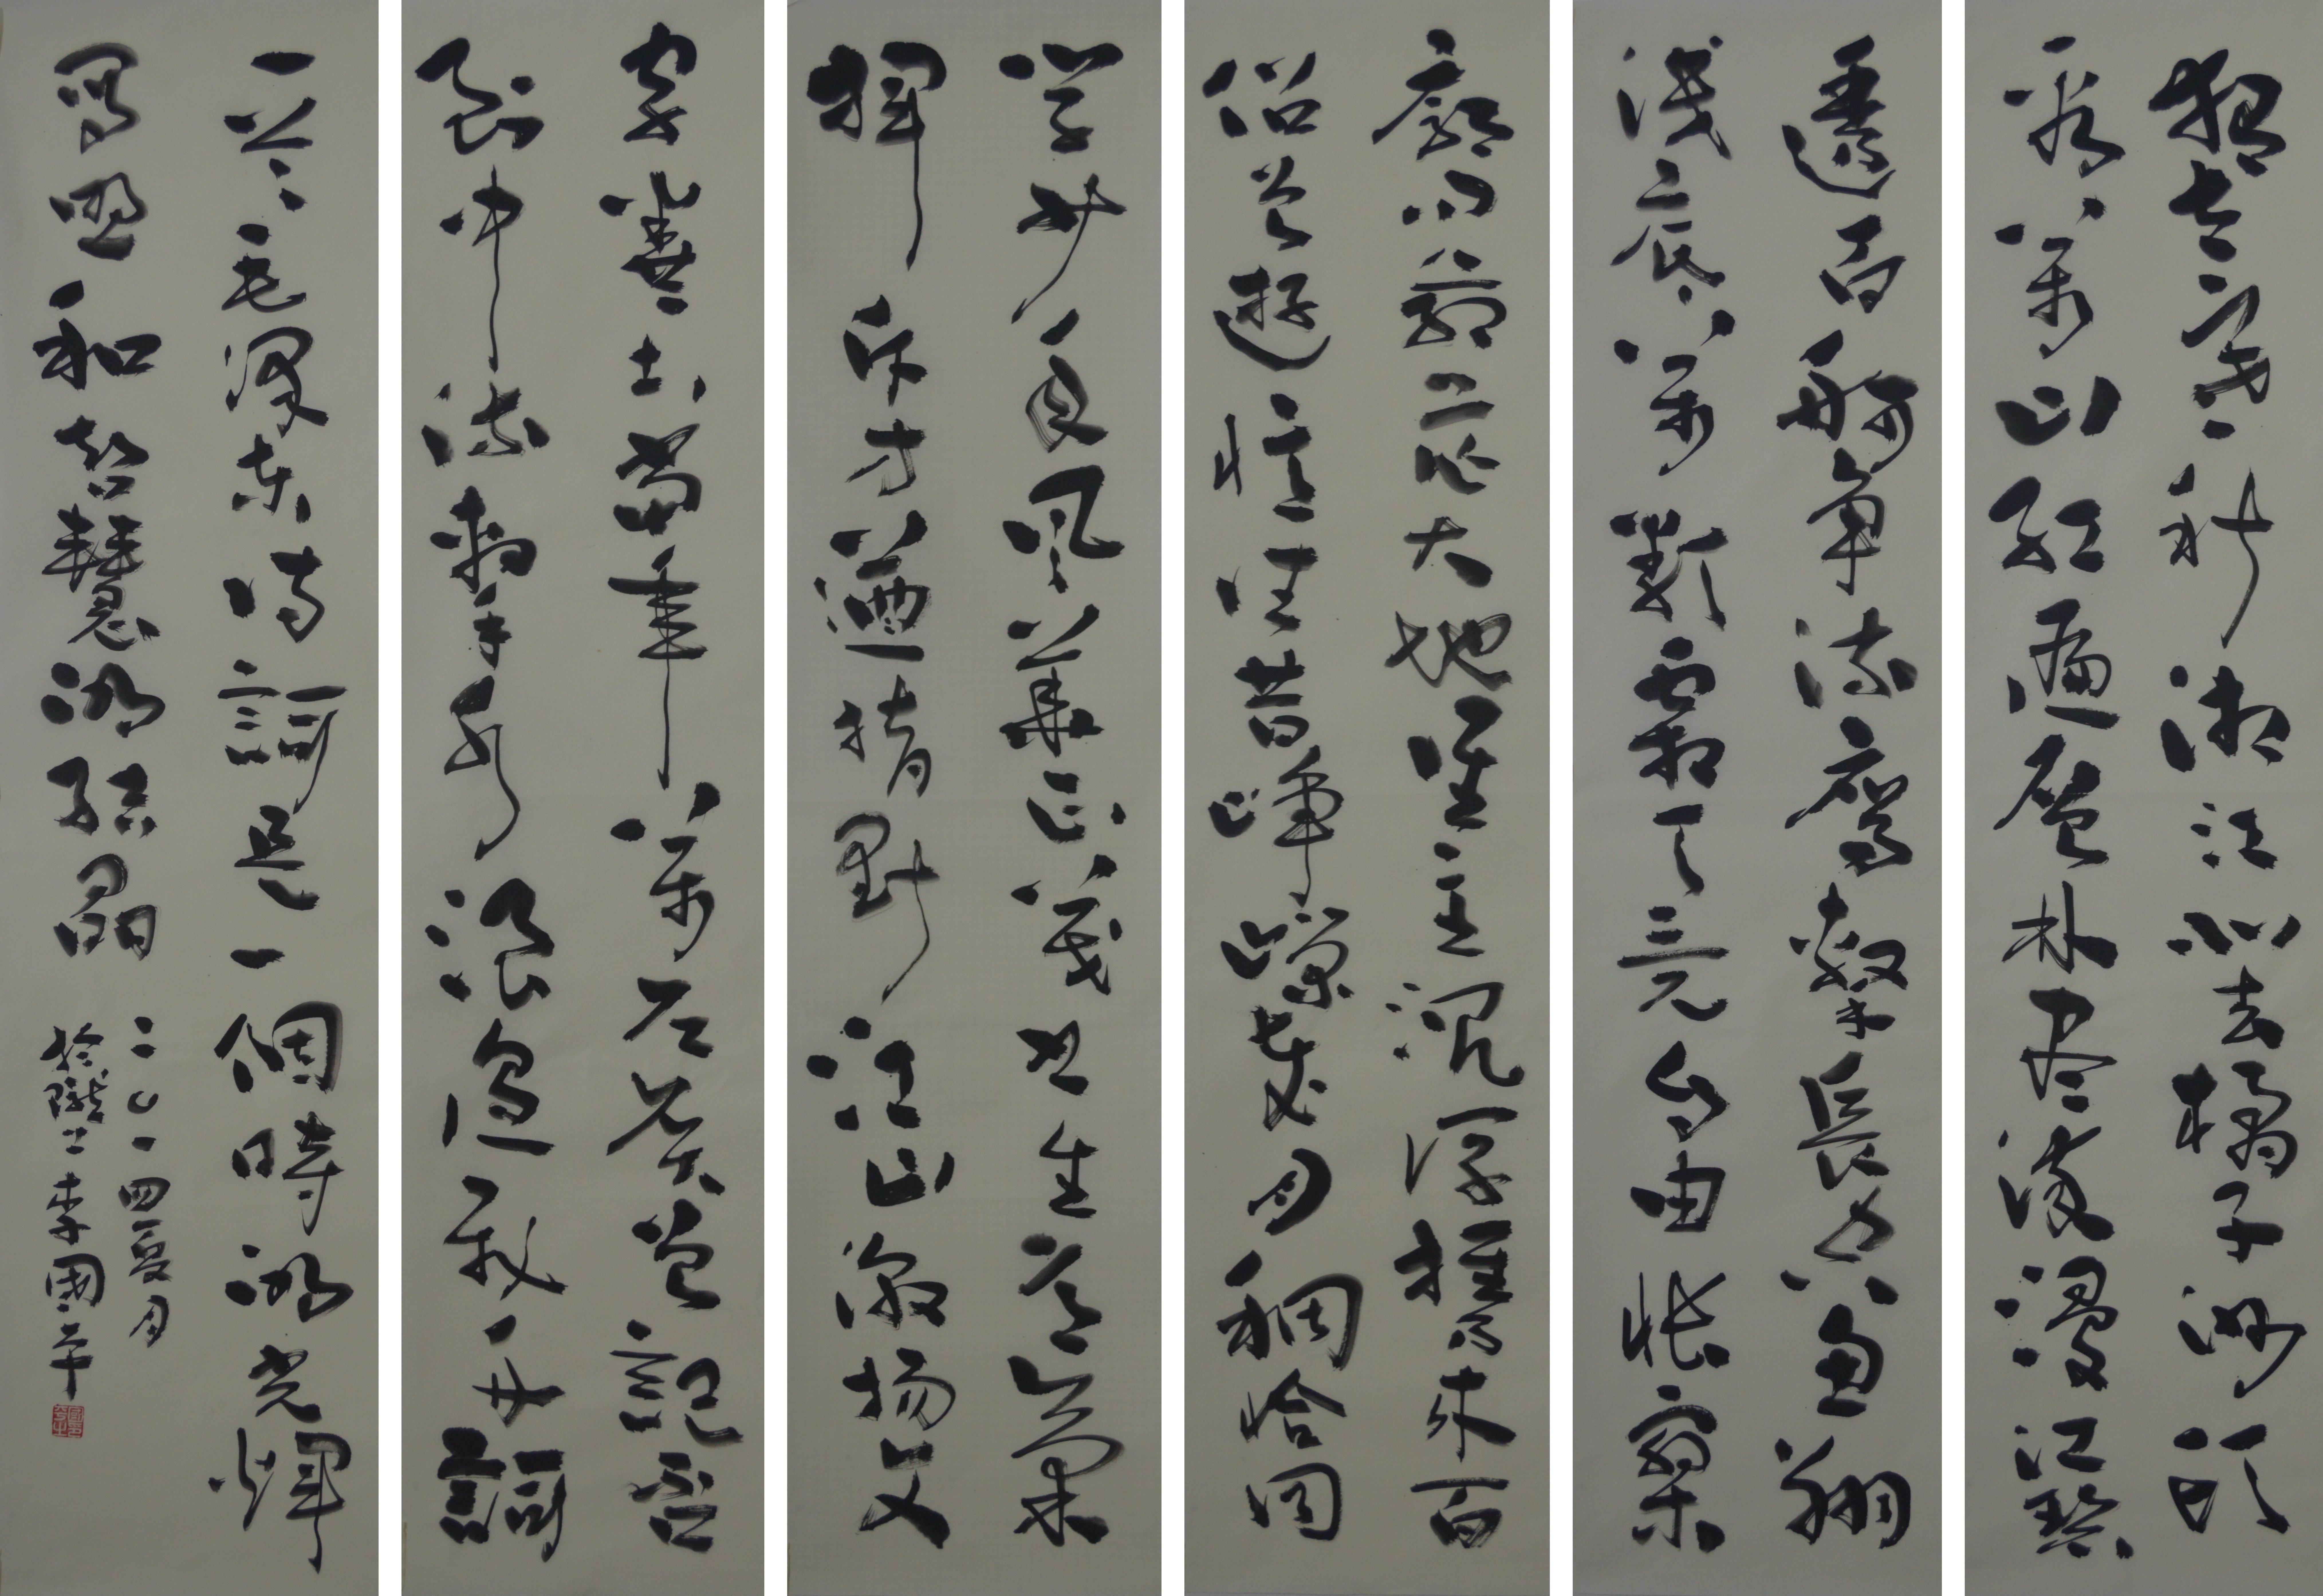 獨立寒秋湘江北去橘子洲頭
看萬山紅遍層林尽染漫江碧
透百舸爭流鷹擊長空魚翔
淺底萬類霜天競自由悵寥
廓問蒼茫大地誰主沉浮攜來百
侣曾遊憶往昔崢嶸歲月稠恰同
學少年風華正茂書生意氣
揮斥方遒指點江山激揚文
字糞土當年萬户侯曾記否
到中流擊水浪遏飛舟詞
一首毛澤東詩詞是一個時的光輝
寫照和智慧的結晶
二〇一四夏月
於隴上李國平